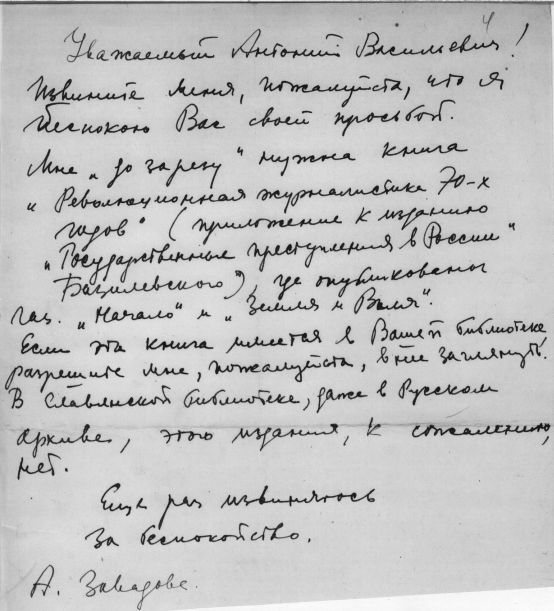 4
Уважаемый Антоний Васильевич!
Извините меня, пожалуйста, что я
беспокою Вас своей просьбой.
Мне „до зарезу" нужна книга
„Революционная журналистика 70-х
годов" (приложение к изданию
„Государственные преступления в России"
Базилевского), где опубликованы
газ. „Начало" и „Земля и Воля".
Если эта книга имеется в Вашей библиотеке,
разрешите мне, пожалуйста, в нее заглянуть.
В Славянской библиотеке, даже в Русском
архиве, этого издания, к сожалению,
нет.
Еще раз извиняюсь
за беспокойство.
А.